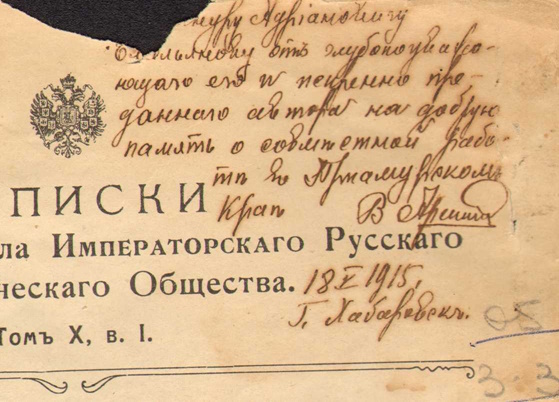 Адріановичу
отъ
ющаго его и искренно пре-
даннаго автора на добрую
память о совмѣстной рабо-
тѣ въ Пріамурскомъ
Краѣ В
ПИСКИ
ла Императорскаго Русскаго
ческаго Общества.
18 V 1915,
г. Хабаровскъ.
Томъ X, в. I.